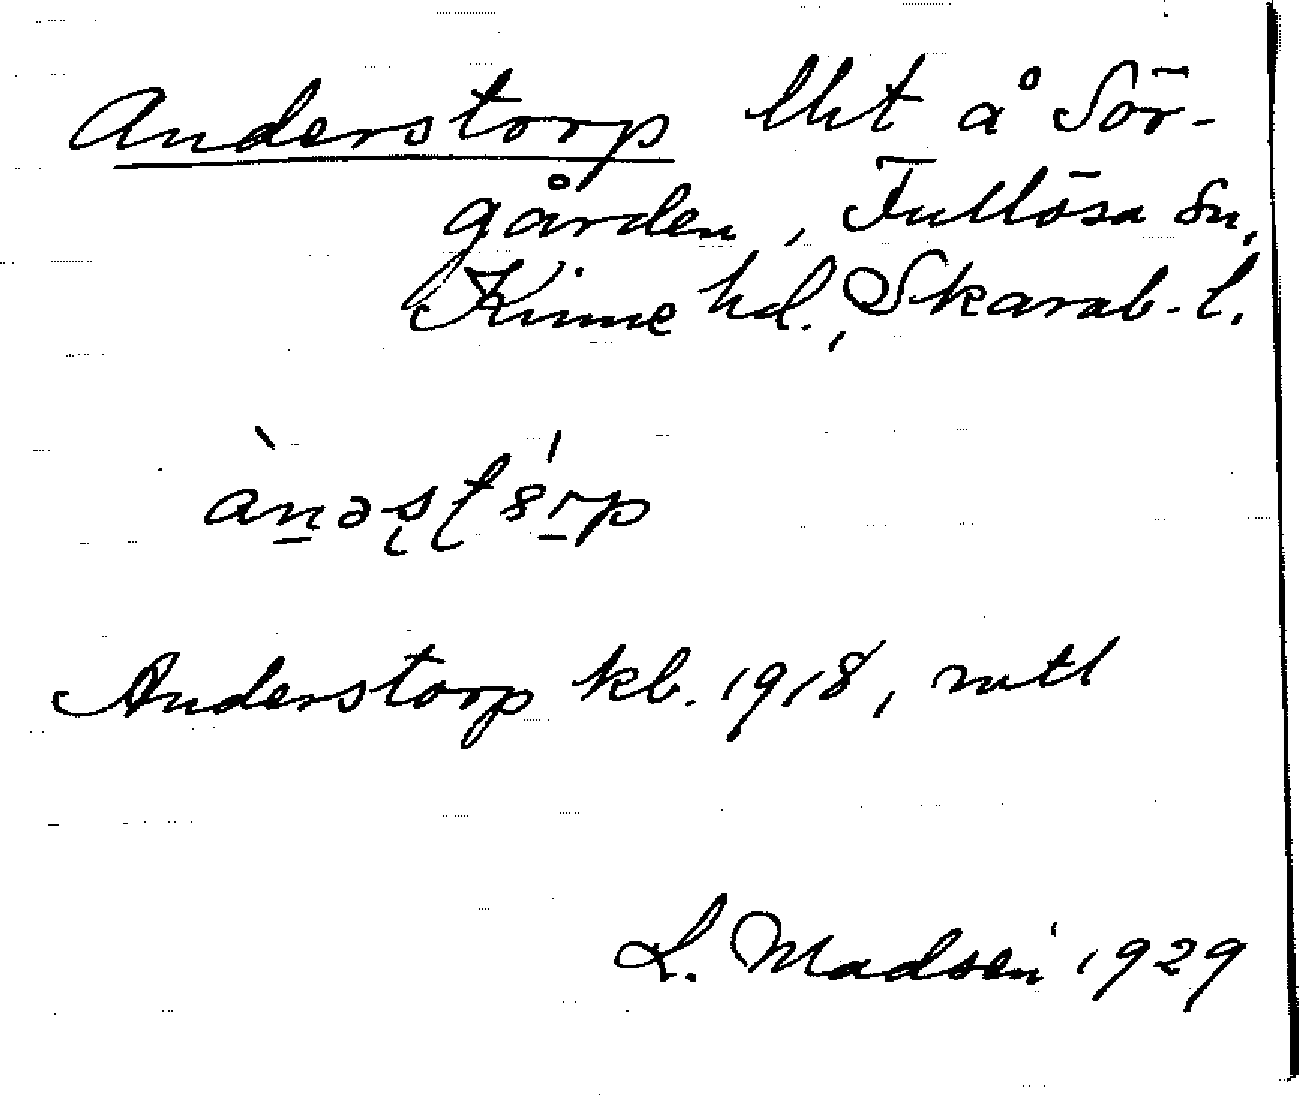 Anderstorp lht å Sör-
gården, Fullösa sn,
Kinne hd., Skarab. l.
ànəst8́rp
Anderstorp kb. 1918, mtl
L. Madsén 1929